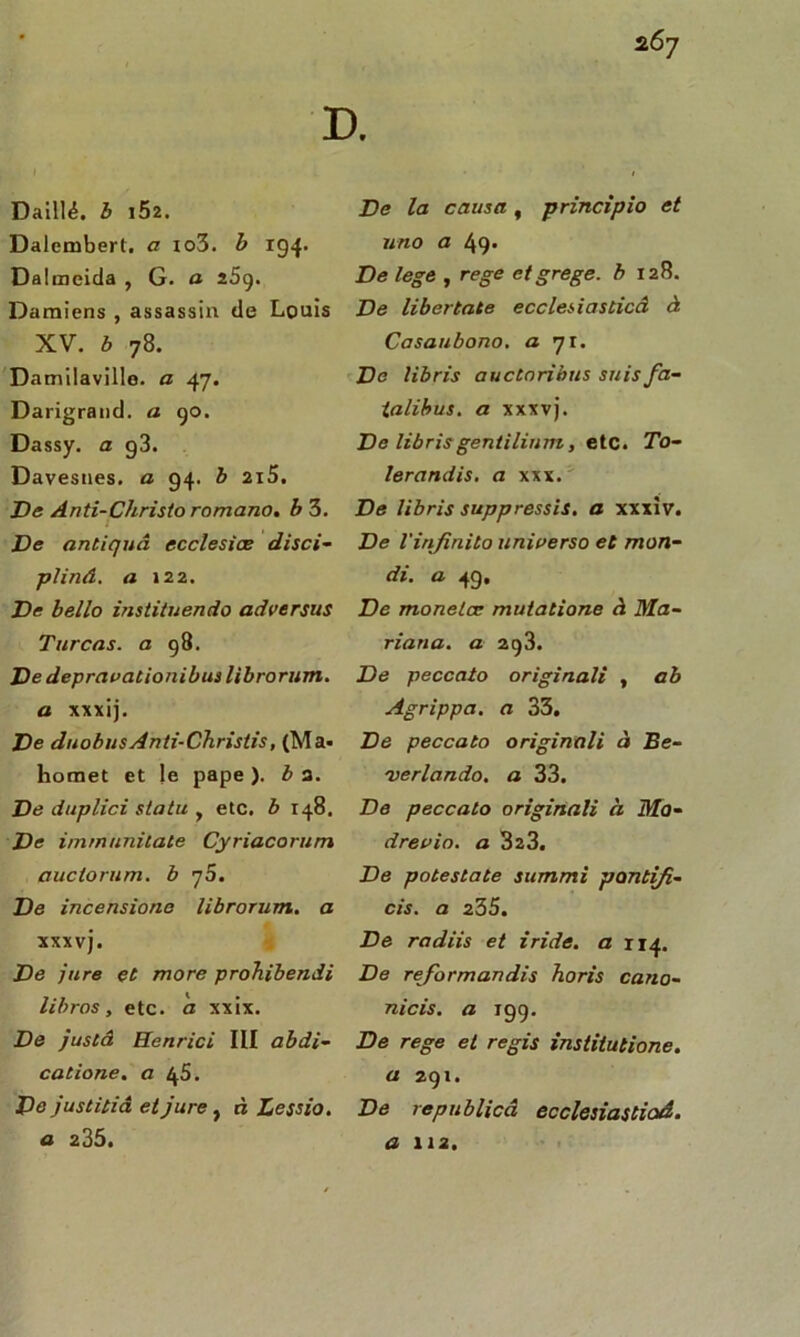 267
D.
Daillé. b 152.
Dalembert. a 103. b 194.
Dalmeida , G. a 259.
Damiens , assassin de Louis
XV. b 78.
Damilaville. a 47.
Darigrand. a 90.
Dassy. a 93.
Davesnes. a 94. b 215.
De Anti-Christo romano. b 3.
De antiquâ ecclesiæ disci-
plinâ. a 122.
De bello instituendo adversus
Turcas. a 98.
De depravationibus librorum.
a xxxij.
De duobus Anti-Christis, (Ma-
homet et le pape ). b 2.
De duplici statu , etc. b 148.
De immunitate Cyriacorum
auctorum. b 75.
De incensione librorum. a
xxxvj.
De jure et more prohibendi
libros, etc. a xxix.
De justâ Henrici III abdi-
catione. a 45.
De justitiâ et jure, à Lessio.
a 235.
De la causa , principio et
uno a 49.
De lege , rege et grege. b 128.
De libertate ecclesiasticâ à
Casaubono. a 71.
De libris auctoribus suis fa-
talibus. a xxxvj.
De libris gentilium, etc. To-
lerandis. a xxx.
De libris suppressis. a xxxiv.
De l'infinito universo et mon-
di. a 49.
De monetæ mutatione à Ma-
riana. a 293.
De peccato originali , ab
Agrippa. a 33.
De peccato originali à Be-
verlando. a 33.
De peccato originali à Mo-
drevio. a 323.
De potestate summi pontifi-
cis. a 235.
De radiis et iride. a 114.
De reformandis horis cano-
nicis. a 199.
De rege et regis institutione.
a 291.
De republicâ ecclesiasticâ.
a 112.